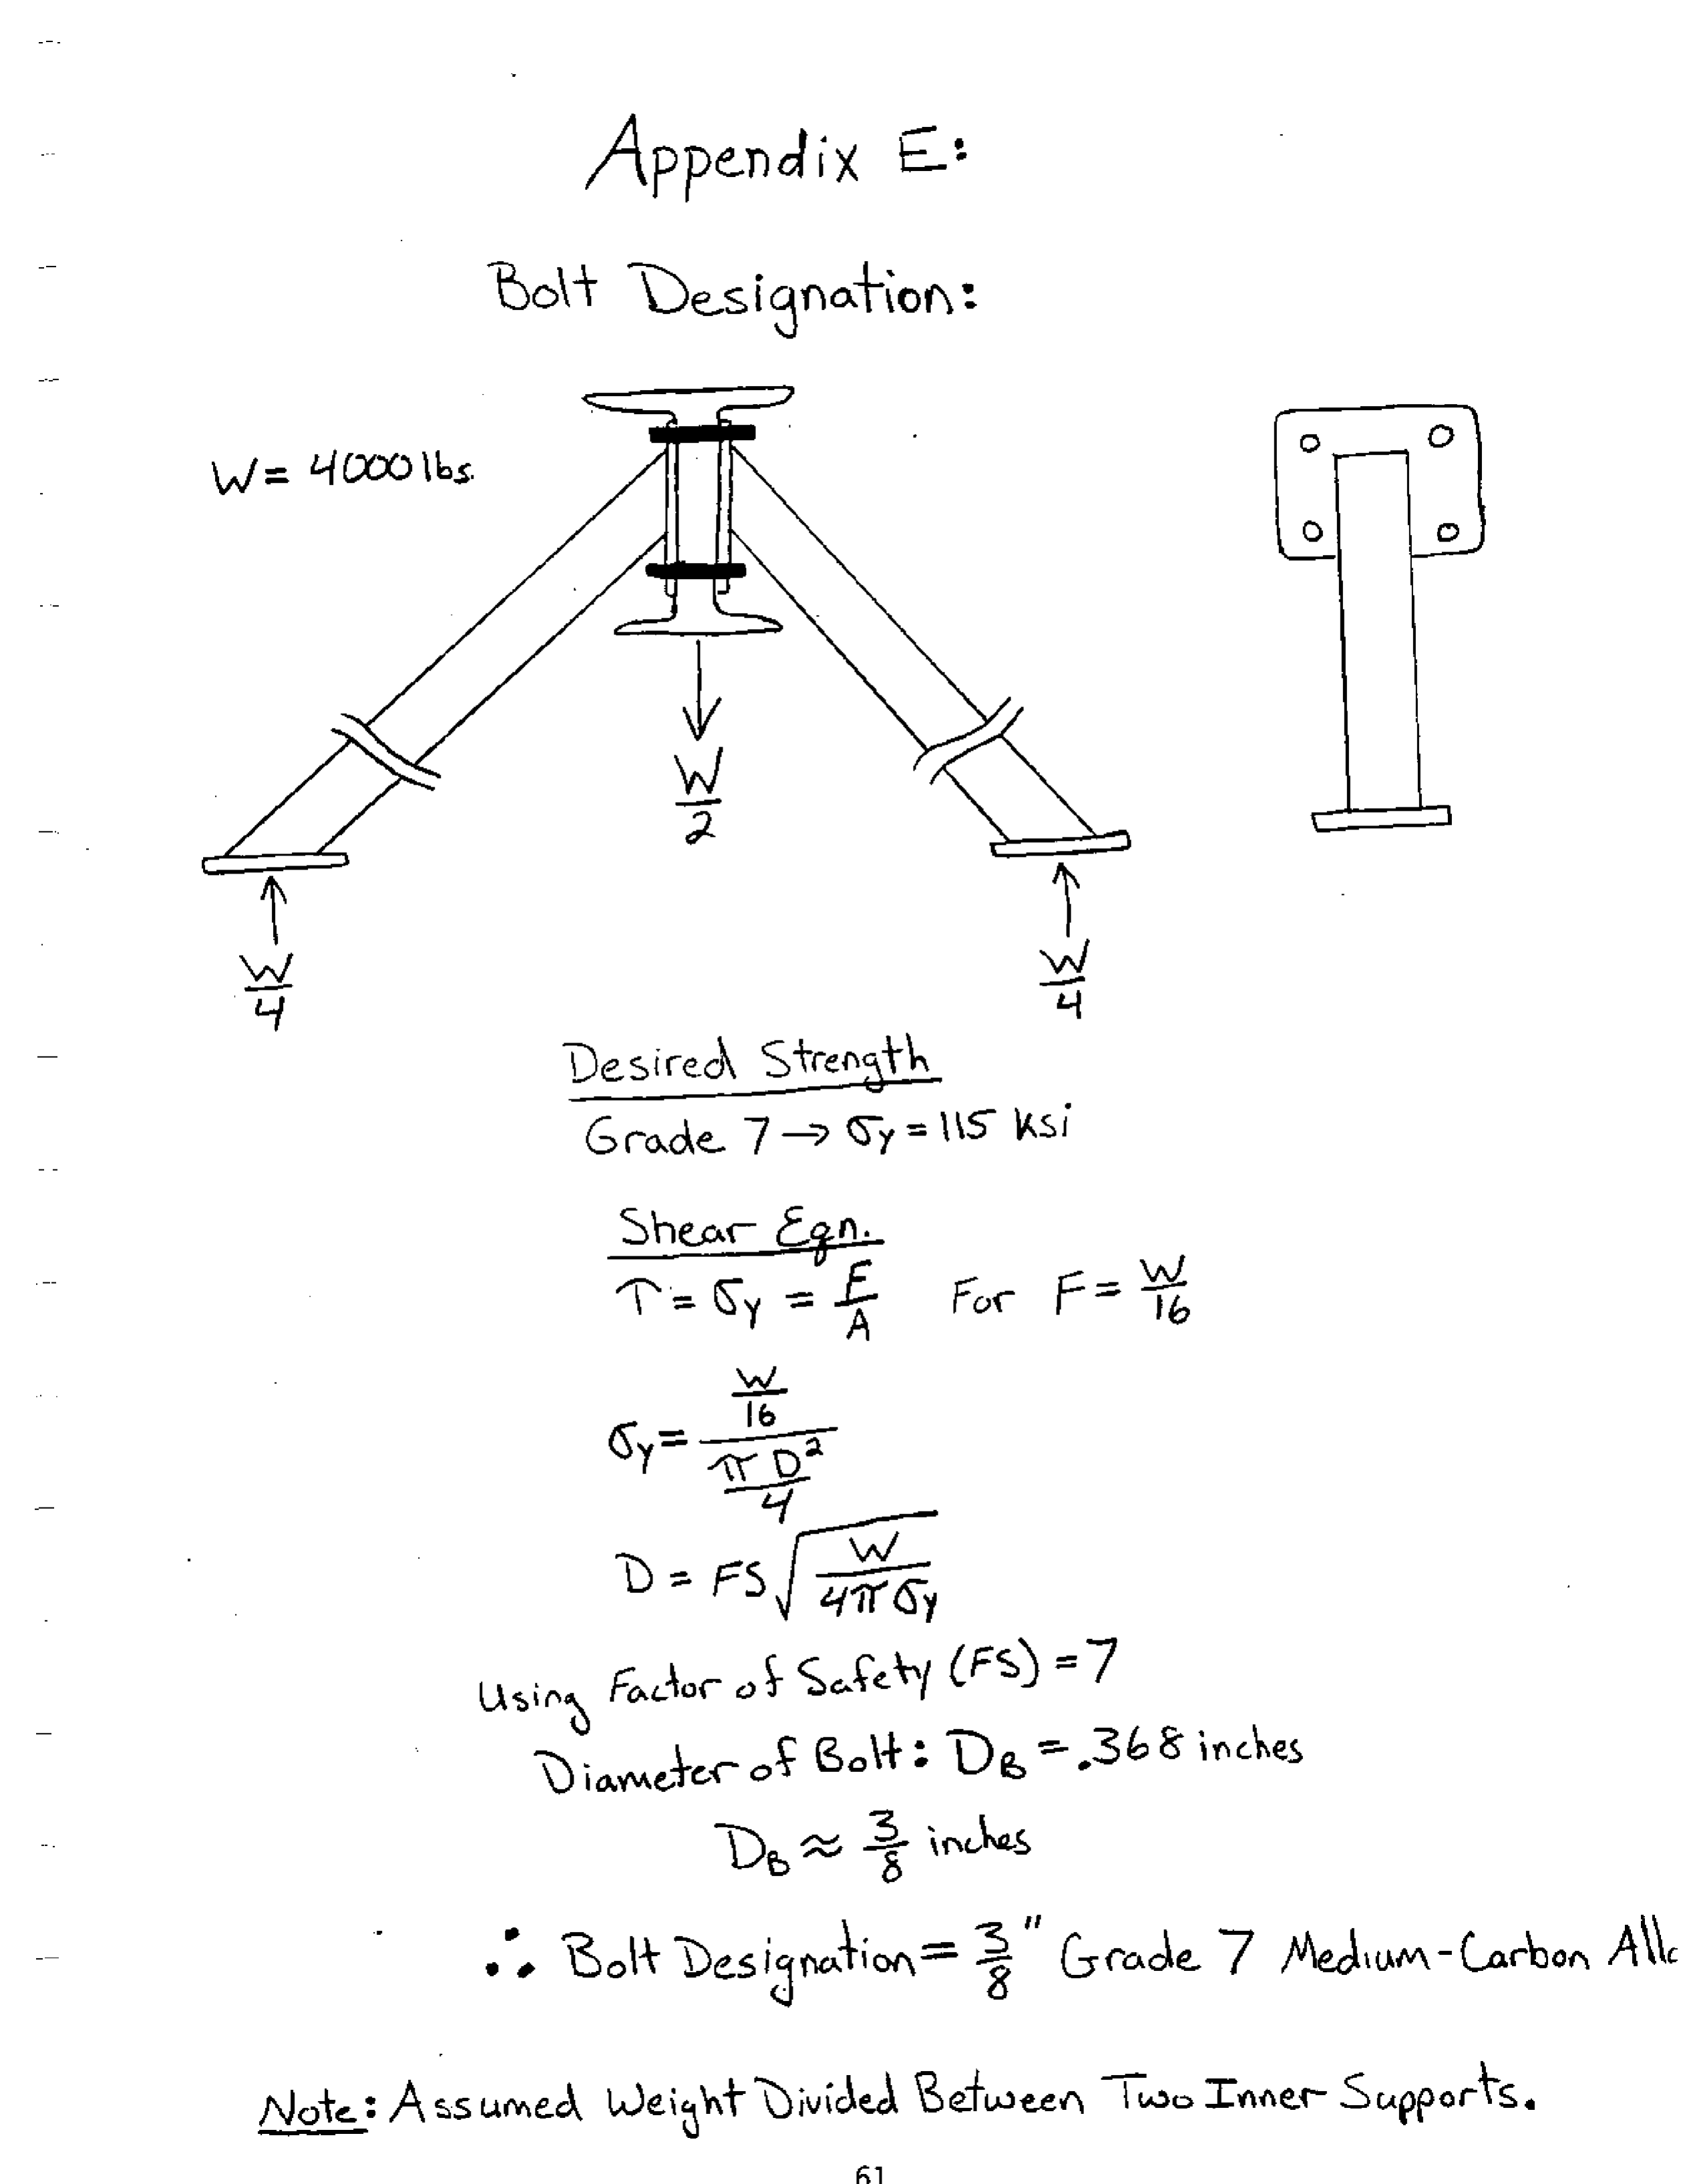 Appendix E:
Bolt Designation:
W = 4000 lbs.
W/2
W/4
W/4
Desired Strength
Grade 7 → σy = 115 ksi
Shear Eqn.
τ = σy = F/A For F = W/16
σy = (W/16)/(πD²/4)
D = FS√(W/(4πσy))
Using Factor of Safety (FS) = 7
Diameter of Bolt: DB = .368 inches
DB ≈ 3/8 inches
∴ Bolt Designation = 3/8" Grade 7 Medium-Carbon
Note: Assumed Weight Divided Between Two Inner Supports.
61